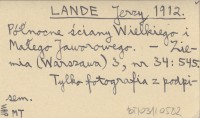 LANDE Jerzy 1912.
Północne ściany Wielkiego i
Małego Jaworowego. — Zie-
mia (Warszawa) 3, nr 34: 545.
Tylko fotografia z podpi-
sem.
MT